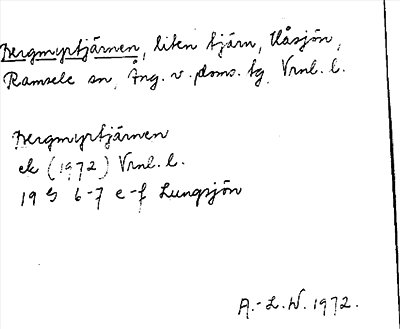 Bergmyrtjärnen, liten tjärn, Uåsjön,
Ramsele sn, Ång. v. doms. tg, Vrnl. l.
Bergmyrtjärnen
ek (1972) Vrnl. l.
19 G 6-7 e-f Lungsjön
A.-L. W. 1972.